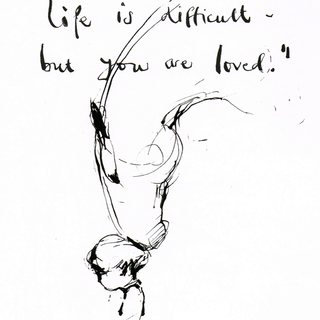 Life is difficult -
but you are loved."